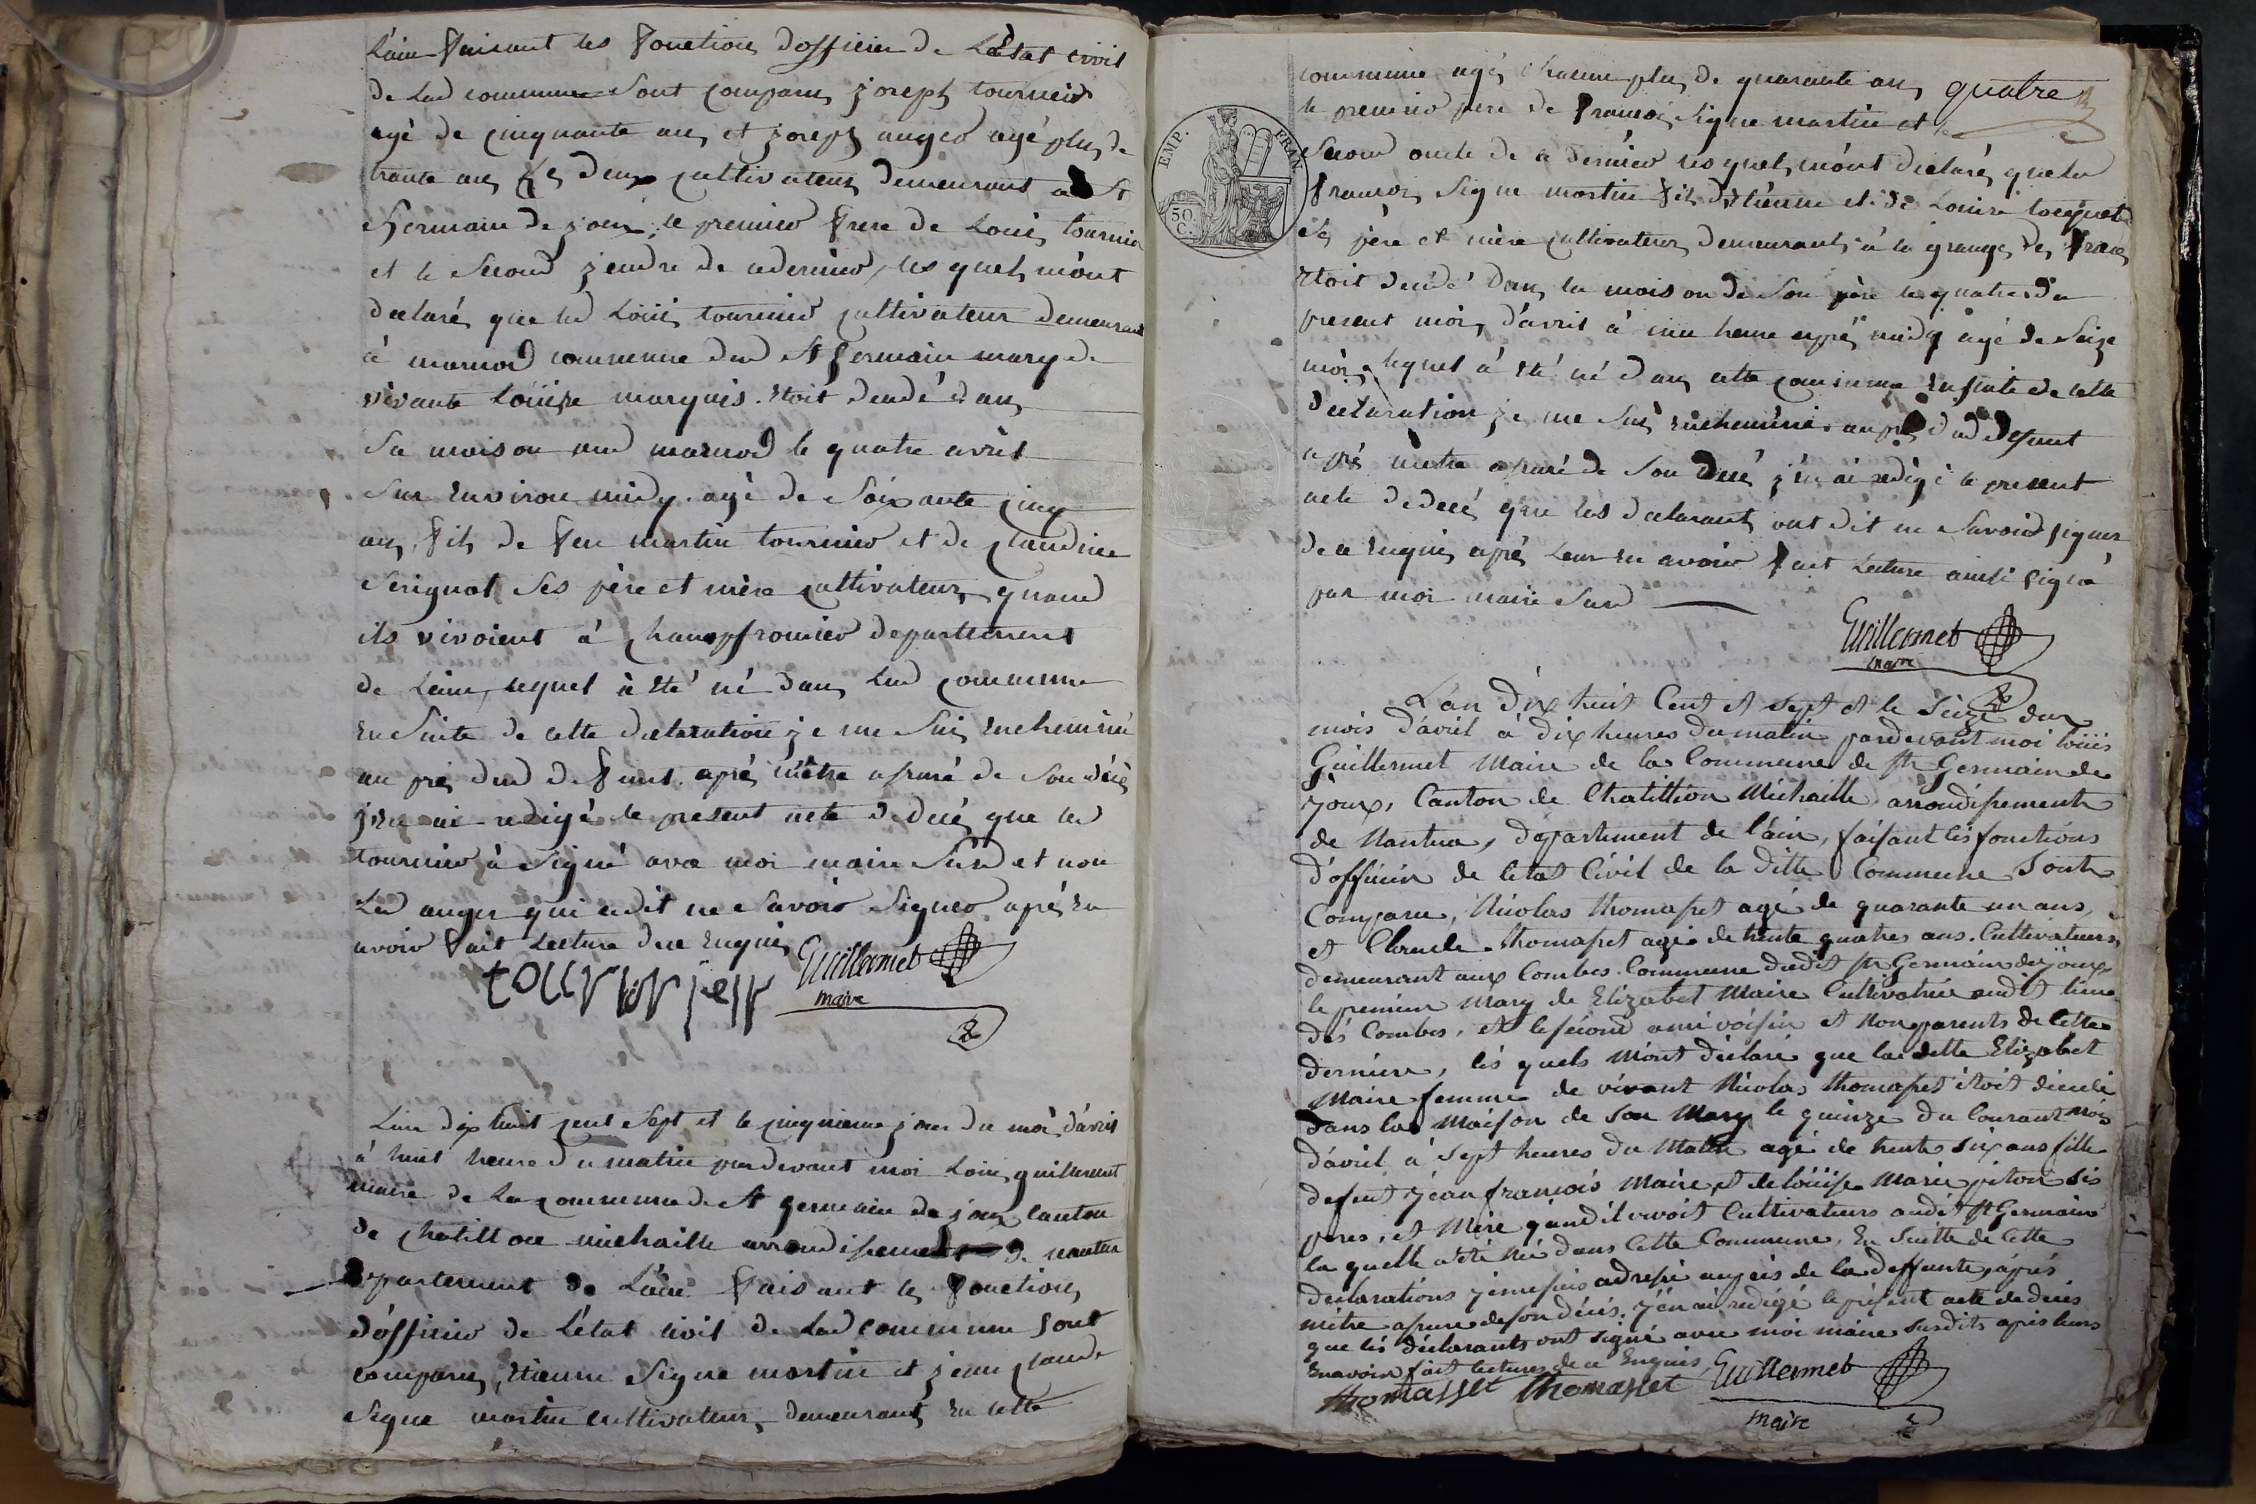 L'ain faisant les fonctions d'officier de L'état civil
de Lad commune sont comparus joseph tournier
agé de cinquante ans et joseph auger agé plus de
trante ans les deux cultivateurs demeurants a St
Germain de joux, le premier frere de Louis tournier
et le second jendre de ce dernier, les quels m'ont
declaré que led Louis tournier cultivateur demeurant
à marnod commune dud St Germain mary de
vivante Louise marquis. Etoit decedé dans
sa maison aud marnod le quatre avril
sur Environ midy. agé de soixante cinq
ans, fils de feu martin tournier et de claudine
ses père et mère cultivateurs quand
ils vivoient à champfromier departement
de Lain, lequel à eté né dans Lad commune
En suite de cette declaration je me suis encheminé
au prés dud defunt. aprés m'être assuré de son décés
j'en ai redigé le present acte de decé que led
tournier à signé avec moi maire susd et non
Led auger qui a dit ne savoir signer aprés En
avoir fait Lecture de ce Enquis
Guillermet
maire
L'an dix huit cent sept et le cinquieme jour du moi d'avril
à huit heure du matin pardevant moi Louis guillermet
maire de La commune de St germain de joux canton
de chatillon michaille arrondissement de nantua
departement de L'ain faisant les fonctions
d'officier de L'état civil de Lad commune sont
comparus, Etienne Signe martin et jean claude
Signe martin cultivateurs, demeurants En cette
commune agés chacun plus de quarante ans quatre
le premier pere de francois Signe martin et le
second oncle de ce dernier les quels m'ont declarés que led
francois Signe martin fils d'Etienne et de Louise
ses père et mère cultivateurs demeurants à la grange des
Etoit decedé dans la maison de son père le quatre du
present mois d'avril à une heure aprés midy agé de seize
mois, lequel à eté né dans cette commune En suite de cette
declaration je me suis encheminé au prés dud defunt
aprés m'être assuré de son decé j'en ai redigé le present
acte de decé que les declarants ont dit ne savoir signer
de ce Enquis aprés Leur en avoir fait Lecture ainsi signé
par moi maire susd
Guillermet
maire
L'an dix huit Cent et sept et le seize du
mois d'avril à dix heures du matin pardevant moi louis
Guillermet Maire de la Commune de St Germain de
Joux, Canton de Chatillion Michaille arrondissement
de Nantua, departement de l'ain, faisant les fonctions
d'officier de l'etat Civil de la ditte Commune Sont
Comparu, Nicolas thomasset agé de quarante un ans,
et Claude thomasset agé de trente quatres ans. Cultivateurs
demeurant aux Combes. Commune dudit St Germain de joux
le premier Mary de Elizabet Maire Cultivatrice audit lieu
dés Combes, et le second ami voisin et Non parents de Cette
derniere, lés quels m'ont déclaré que la ditte Elizabet
Maire femme de vivant Nicolas thomasset étoit décédé
dans la Maison de son Mary le quinze du Courant mois
d'avril à sept heures du Matin agé de trente six ans fille
defeut Jean françois Maire et de louise Marie piton sés
peres, et Mere quand il vivoit Cultivateurs audit St Germain
la quelle a eté Née dans Cette Commune, En suitte de Cette
declarations je me suis adressé auprés de la deffunte, aprés
métre assure de son décés. j'en ai redigé le présent acte de decés
que lés déclarants ont signé avec moi maire susdits aprés leurs
En avoir fait lectures de ce Enquis Guillermet
thomasset thomasset
maire